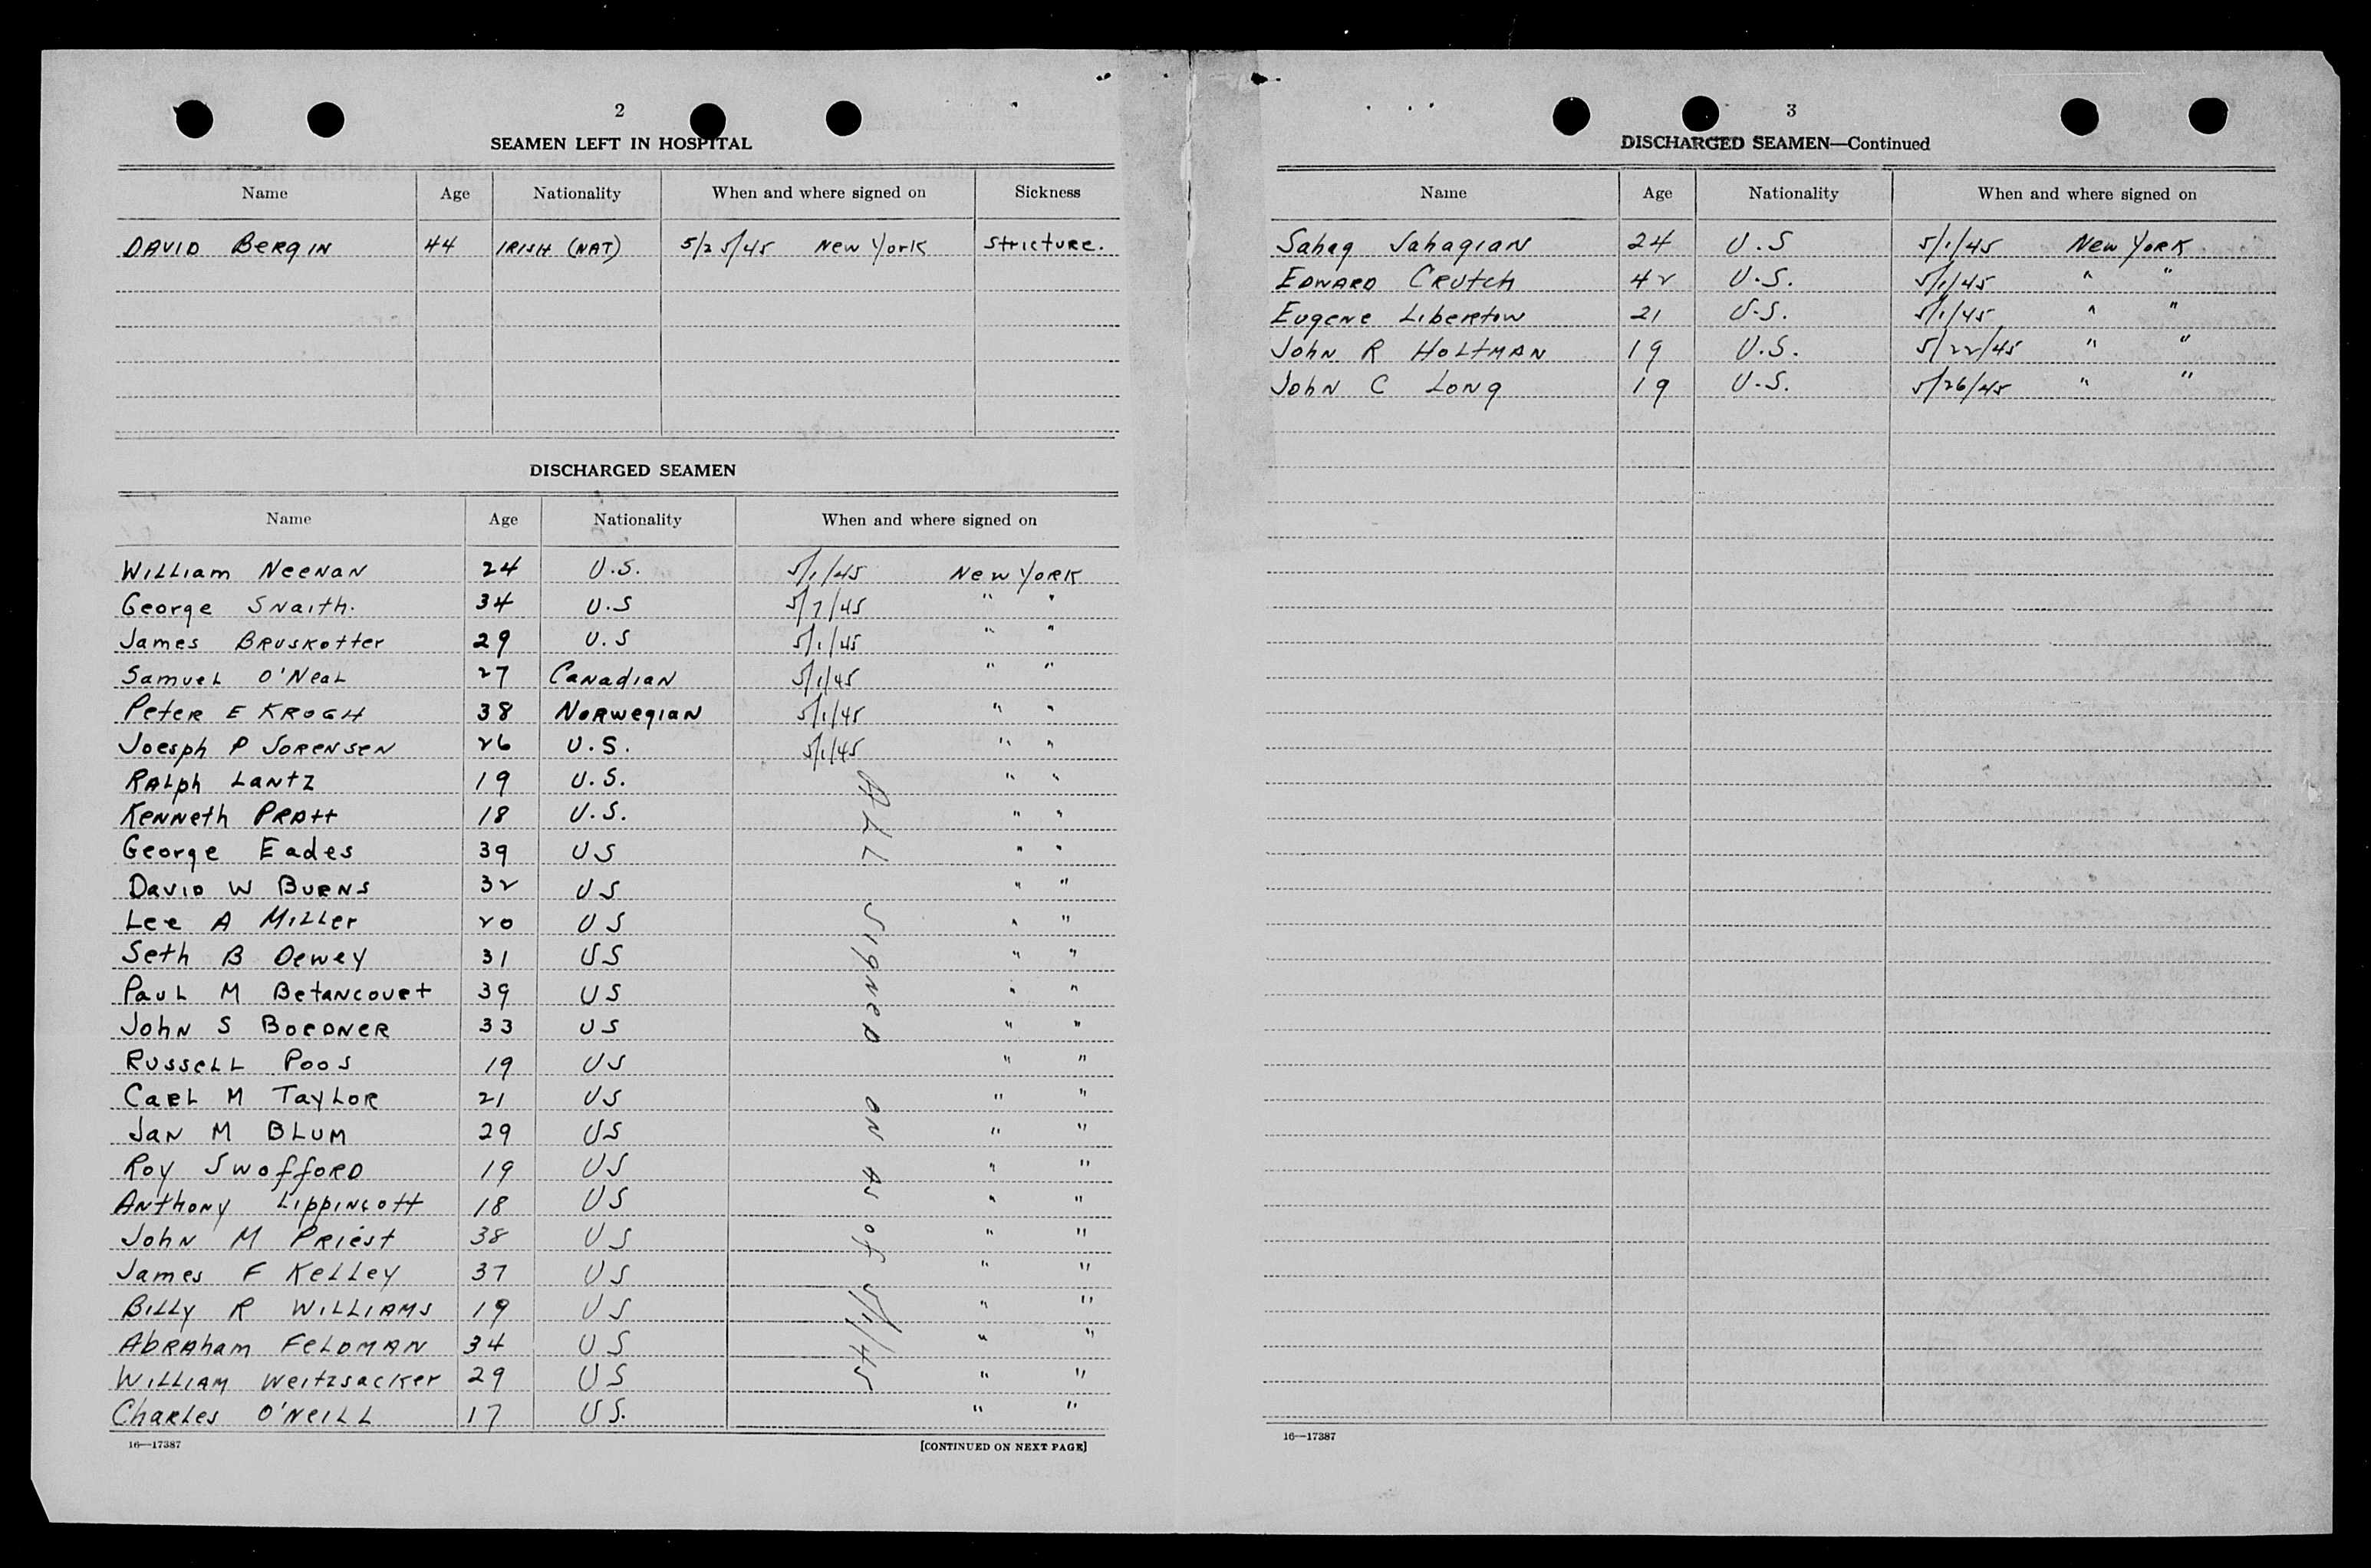 2
SEAMEN LEFT IN HOSPITAL
Name Age Nationality When and where signed on Sickness
DAVID BERGIN 44 IRISH (NAT) 5/25/45 New York Stricture.
DISCHARGED SEAMEN
Name Age Nationality When and where signed on
William Neenan 24 U.S. 5/1/45 New York
George Snaith. 34 U.S 5/7/45 " "
James Bruskotter 29 U.S 5/1/45 " "
Samuel O'Neal 27 Canadian 5/1/45 " "
Peter E Krogh 38 Norwegian 5/1/45 " "
Joesph P Sorensen 26 U.S. 5/1/45 " "
Ralph Lantz 19 U.S. " "
Kenneth Pratt 18 U.S. " "
George Eades 39 US " "
David W Burns 32 US " "
Lee A Miller 20 US " "
Seth B Dewey 31 US " "
Paul M Betancourt 39 US " "
John S Boedner 33 US " "
Russell Poos 19 US " "
Carl M Taylor 21 US " "
Jan M Blum 29 US " "
Roy Swofford 19 US " "
Anthony Lippincott 18 US " "
John M Priest 38 US " "
James F Kelley 37 US " "
Billy R Williams 19 US " "
Abraham Feldman 34 US " "
William Weitzsacker 29 US " "
Charles O'Neill 17 US. " "
ALL SIGNED ON AS OF 5/1/45
16—17387 [CONTINUED ON NEXT PAGE]
3
DISCHARGED SEAMEN—Continued
Name Age Nationality When and where signed on
Saheg Sahagian 24 U.S 5/1/45 New York
Edward Crutch 42 U.S. 5/1/45 " "
Eugene Liberton 21 U.S. 5/1/45 " "
John R Holtman 19 U.S. 5/22/45 " "
John C Long 19 U.S. 5/26/45 " "
16—17387